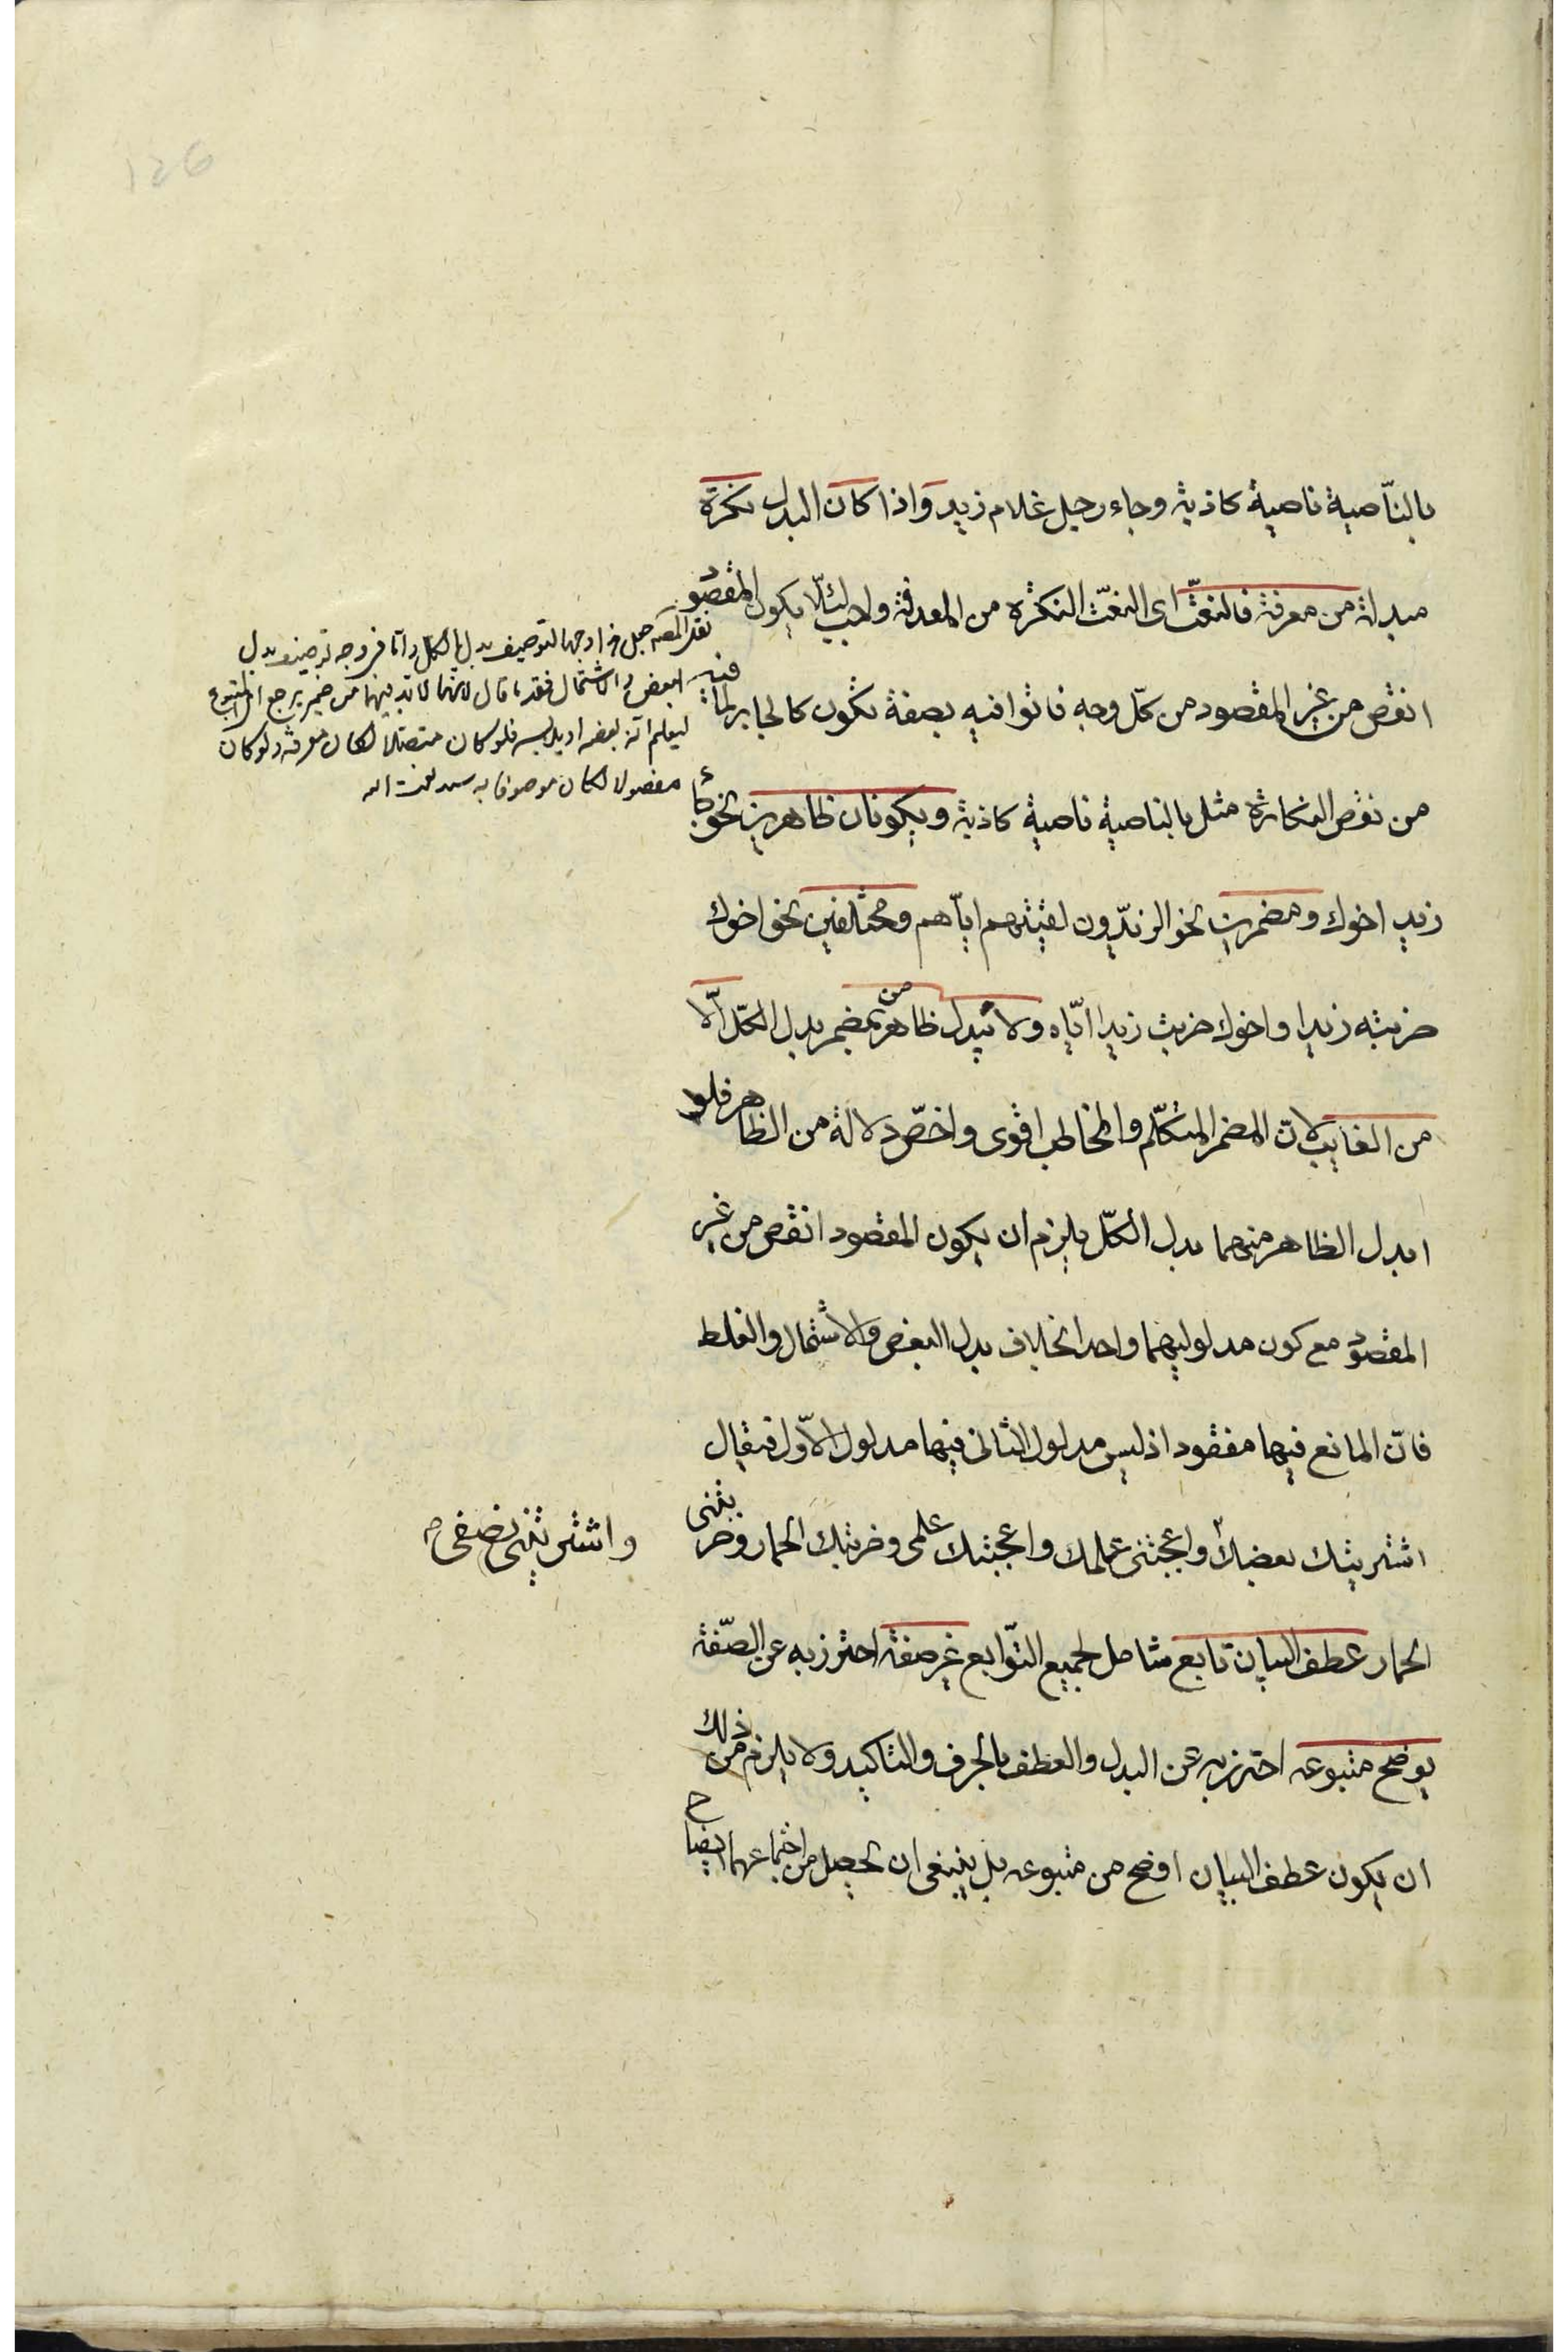 بالنّاصية ناصية كاذبة وجاء رجل غلام زيد واذا كان البدل نكرة
مبدلة من معرفة فالنعت اى النعت النكرة من المعرفة واجب لئلّا يكون المقصود
انقص من غير المقصود من كلّ وجه فاتوا فيه بصفة تكون كالجابر لما فيه
من نقص النكارة مثل بالناصية ناصية كاذبة ويكونان ظاهرين نحو جاء
زيد اخوك ومضمرين نحو الزيدون لقيتهم ايّاهم ومختلفين نحو اخوك
ضربته زيدا واخوك ضربت زيدا ايّاه ولا يبدل ظاهر من مضمر بدل الكلّ الّا
من الغايب لانّ المضمر المتكلّم والمخاطب اقوى واخصّ دلالة من الظاهر فلو
ابدل الظاهر منهما بدل الكلّ يلزم ان يكون المقصود انقص من غير
المقصود مع كون مدلوليهما واحدا بخلاف بدل البعض والاشتمال والغلط
فانّ المانع فيها مفقود اذ ليس مدلول الثانى فيها مدلول الاوّل فيقال
اشتريتك بعضك واعجبتنى علمك واعجبتك علمى وضربتك الحمار وضربتنى
واشتريتنى نصفى
الحمار عطف البيان تابع شامل لجميع التوابع غير صفة احترز به عن الصّفة
يوضح متبوعه احترز به عن البدل والعطف بالحرف والتاكيد ولا يلزم من ذلك
ان يكون عطف البيان اوضح من متبوعه بل ينبغى ان يحصل من اجتماعهما ايضاح
التوصيف بدل الكل وامّا فى وجه توصيف بدل
البعض والاشتمال فقد يقال لانهما لا بد فيهما من ضمير يرجع الى المتبوع
ليعلم انه بعضه او فلو كان متصلا لكان معرفة ولو كان
مفصولا لكان موصوفا به
126